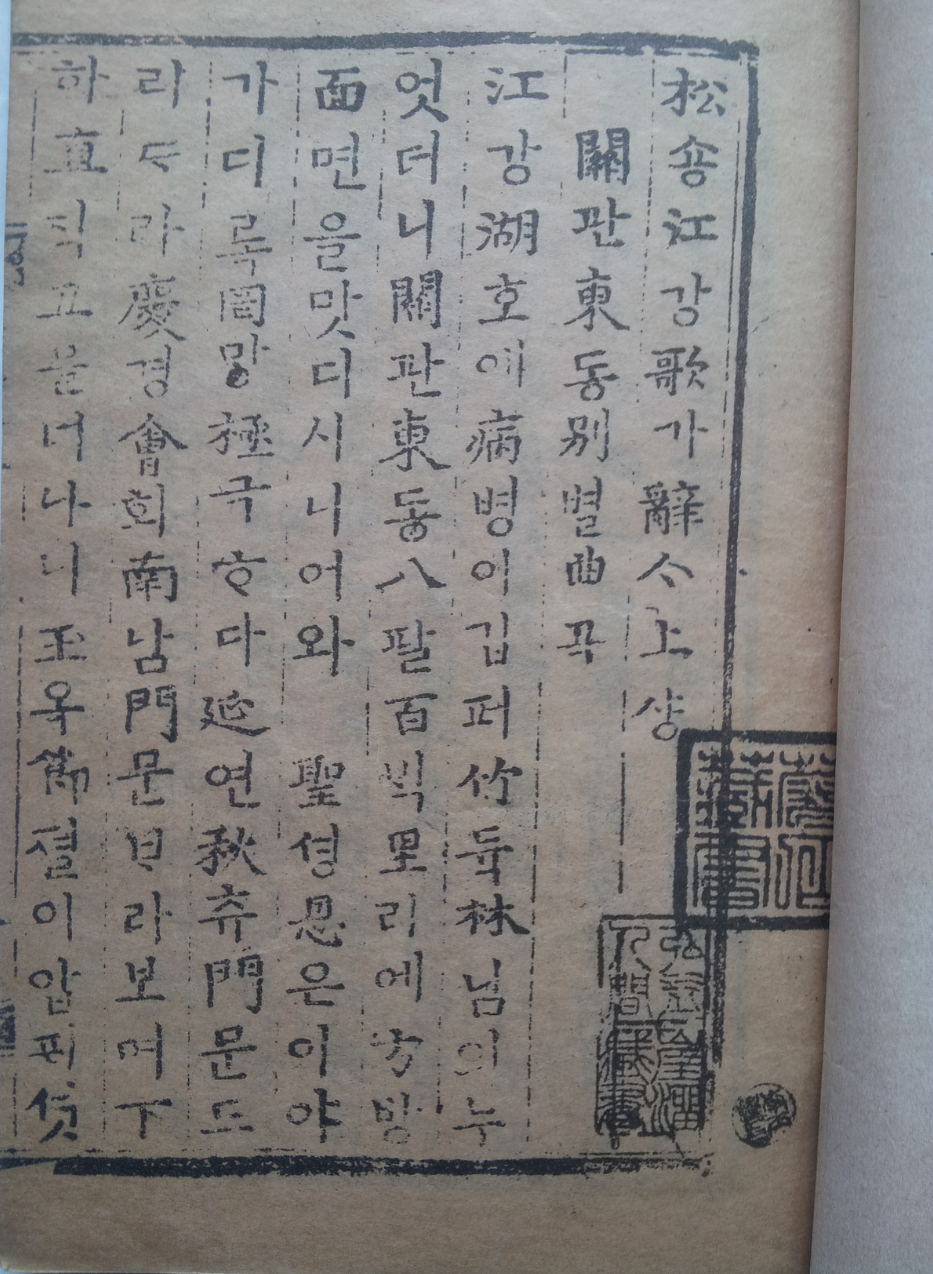 松숑江강歌가辭ᄉᆞ上샹
關관東동別별曲곡
江강湖호애病병이깁퍼竹듁林님의누
엇더니關관東동八팔百ᄇᆡᆨ里리에方방
面면을맛디시니어와 聖셩恩은이야
가디록罔망極극ᄒᆞ다延연秋츄門문드
라ᄃᆞ라慶경會회南남門문ᄇᆞ라보며下
하直직고믈너나니玉옥節졀이압ᄑᆡ셧